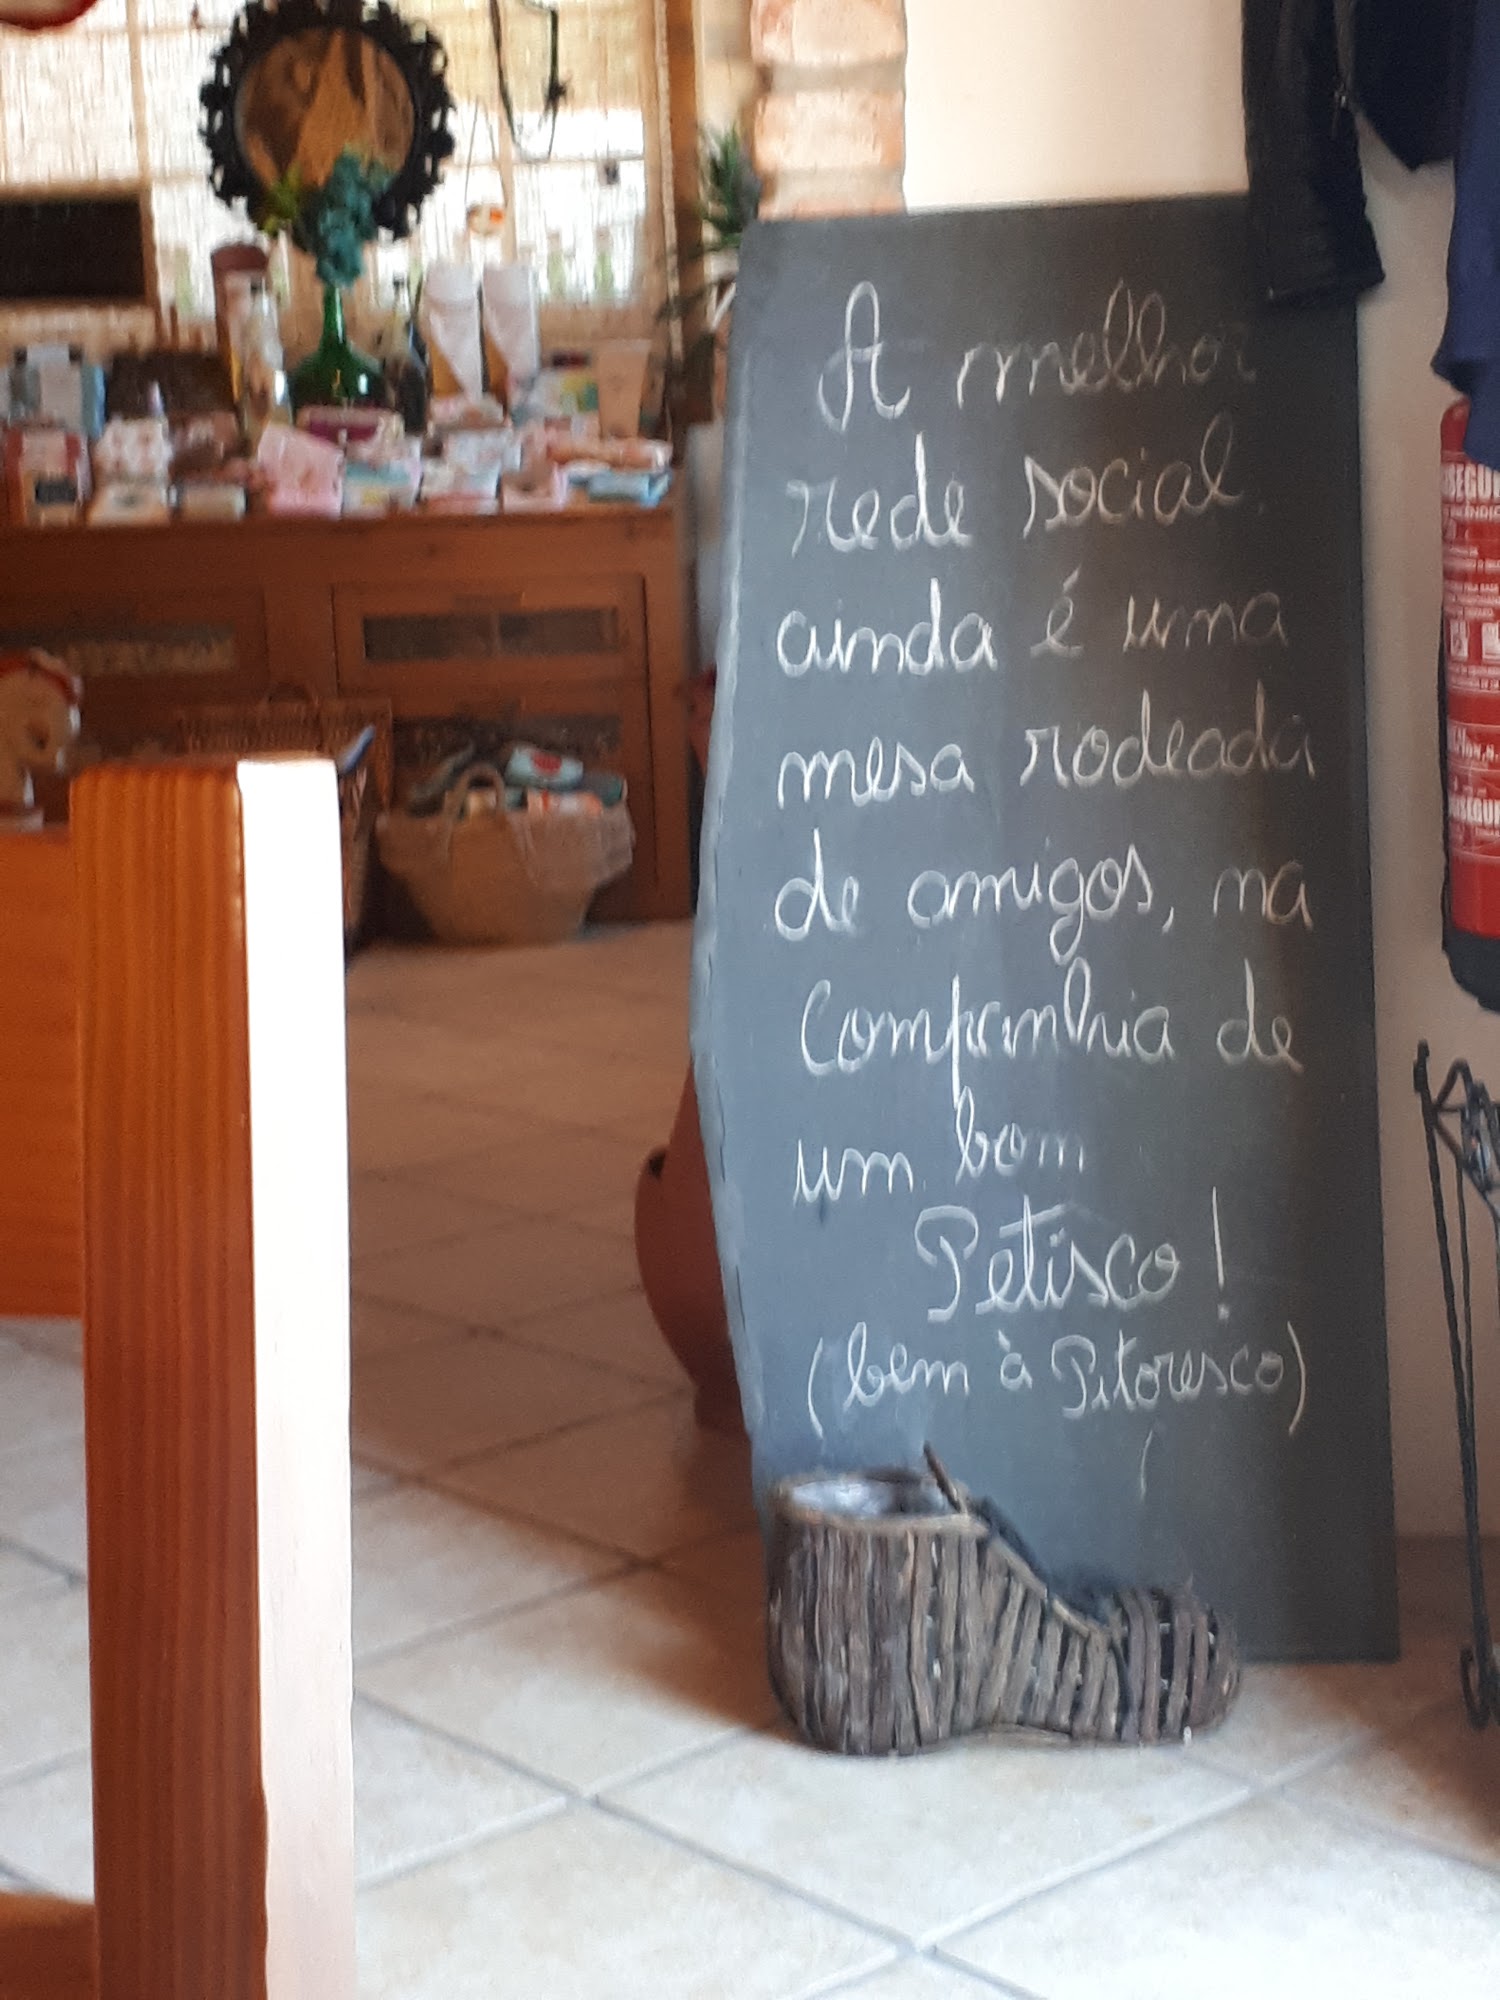 A melhor
rede social
ainda é uma
mesa rodeada
de amigos, na
Companhia de
um bom
Petisco!
(bem à Pitoresco)